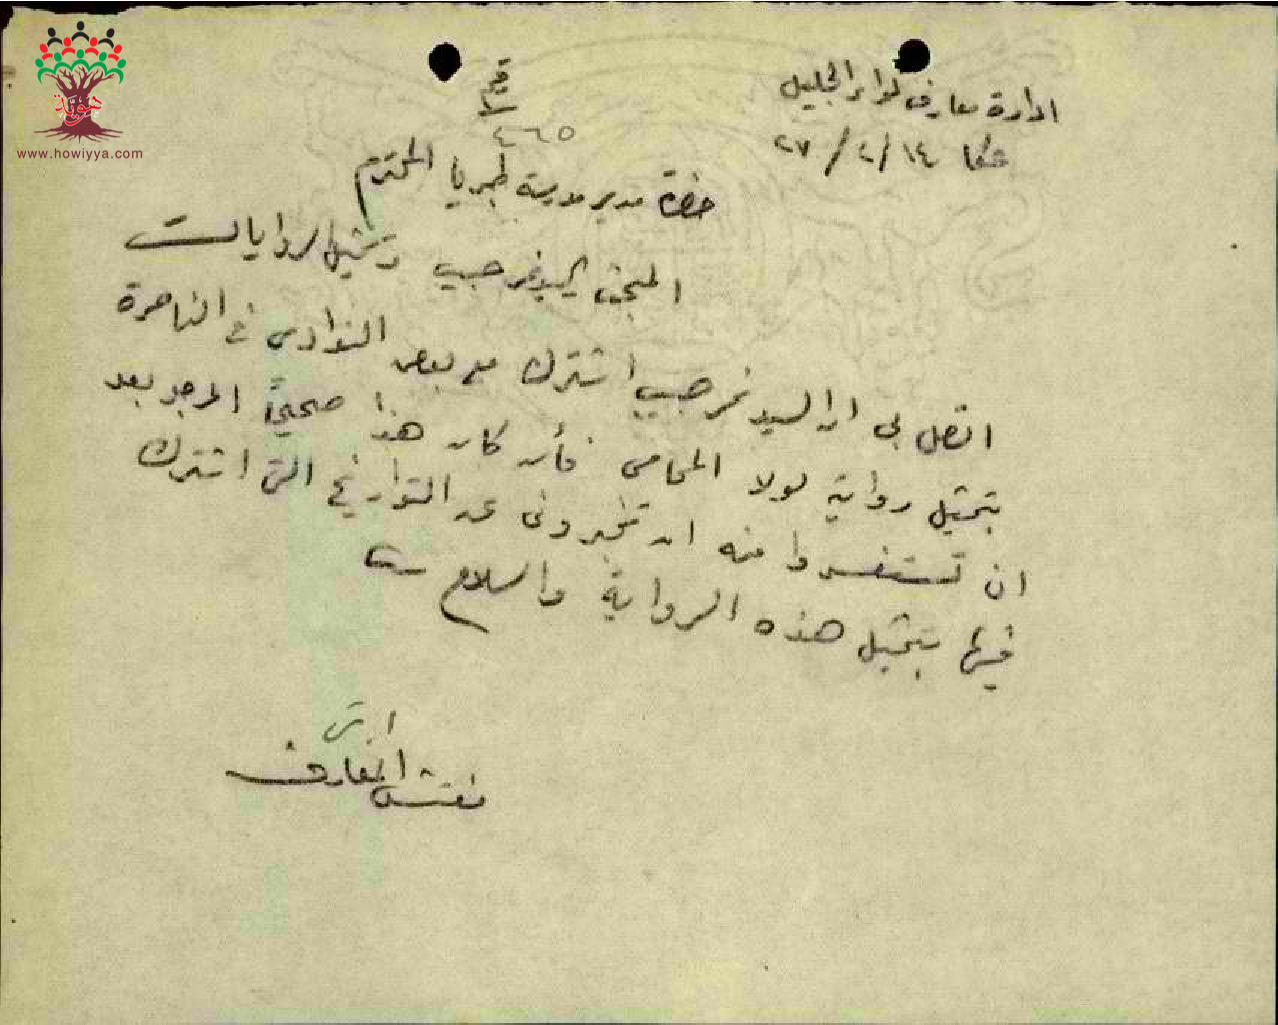 هوية
www.howiyya.com
ادارة معارف لواء الجليل
رقم
٤٦٥
عكا ١٤/٢/٢٧
حضرة مدير مدرسة طبريا المحترم
المبحث السيد نمر حبيب وتمثيل الروايات
اتصل بي ان السيد نمر حبيب اشترك مع بعض النوادي في الناصرة
بتمثيل رواية لولا المحامي فأن كان هذا صحيحًا ارجو بعد
ان تستفسروا منه ان تخبروني عن التواريخ التي اشترك
فيها بتمثيل هذه الرواية والسلام
مفتش المعارف